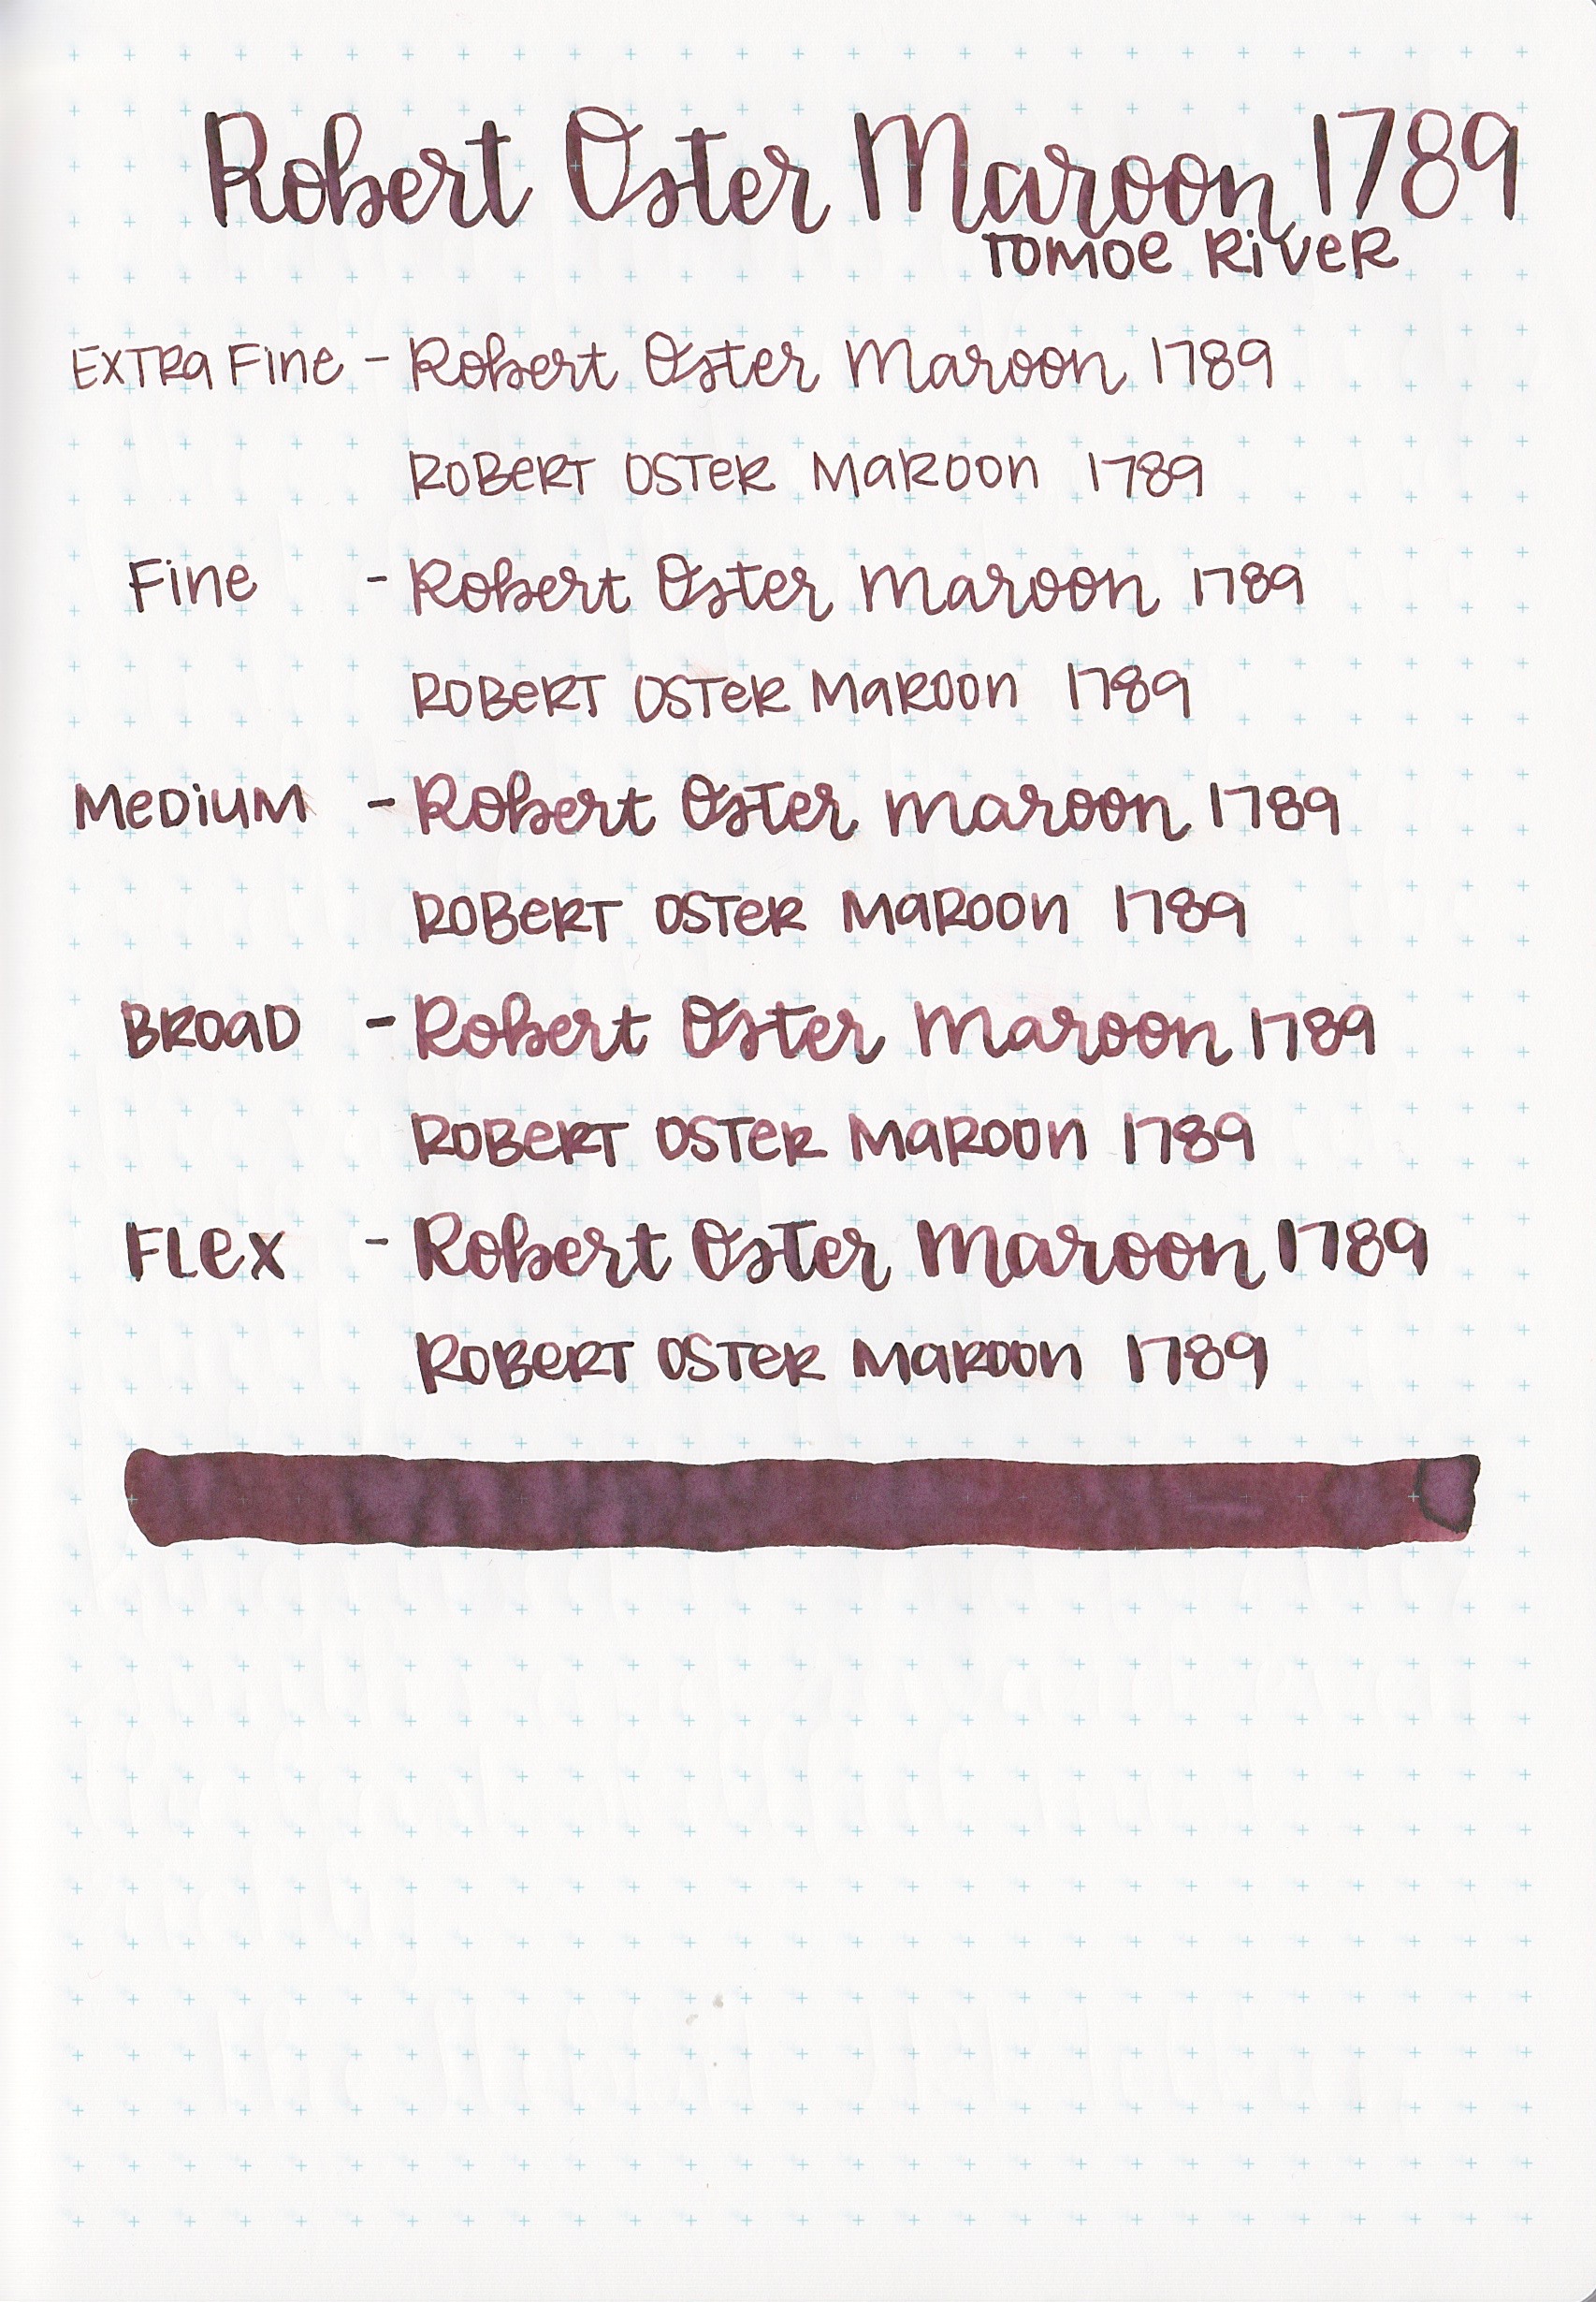 Robert Oster Maroon 1789
Tomoe River
Extra Fine - Robert Oster Maroon 1789
Robert Oster Maroon 1789
Fine - Robert Oster Maroon 1789
Robert Oster Maroon 1789
Medium - Robert Oster Maroon 1789
Robert Oster Maroon 1789
Broad - Robert Oster Maroon 1789
Robert Oster Maroon 1789
Flex - Robert Oster Maroon 1789
Robert Oster Maroon 1789